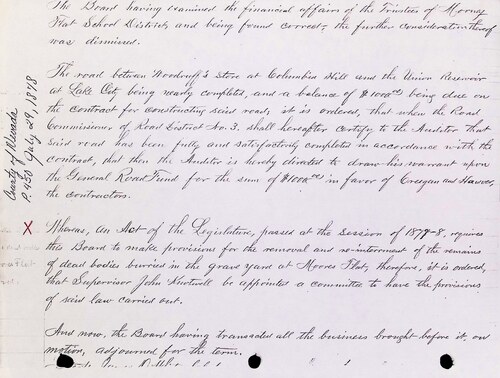 The Board having examined the financial affairs of the Trustees of Moores
Flat School District, and being found correct, the further consideration thereof
was dismissed.
The road between Woodruff's Store at Columbia Hill and the Union Reservoir
at Lake City being nearly completed, and a balance of $1000.00 being due on
the contract for constructing said road, it is ordered, that when the Road
Commissioner of Road District No. 3. shall hereafter certify to the Auditor that
said road has been fully and satisfactorily completed in accordance with the
contract, that then the Auditor is hereby directed to draw his warrant upon
the General Road Fund for the sum of $1000.00 in favor of Creegan and
the contractors.
County of Nevada
P. 450 29, 1878
X
Whereas, an Act of the Legislature, passed at the session of 1877-8, requires
this Board to make provisions for the removal and re-interment of the remains
of dead bodies burried in the grave yard at Moores Flat, therefore, it is ordered,
that Supervisor John be appointed a committee to have the provisions
of said law carried out.
And now, the Board having transacted all the business brought before it, on
motion, adjourned for the term.